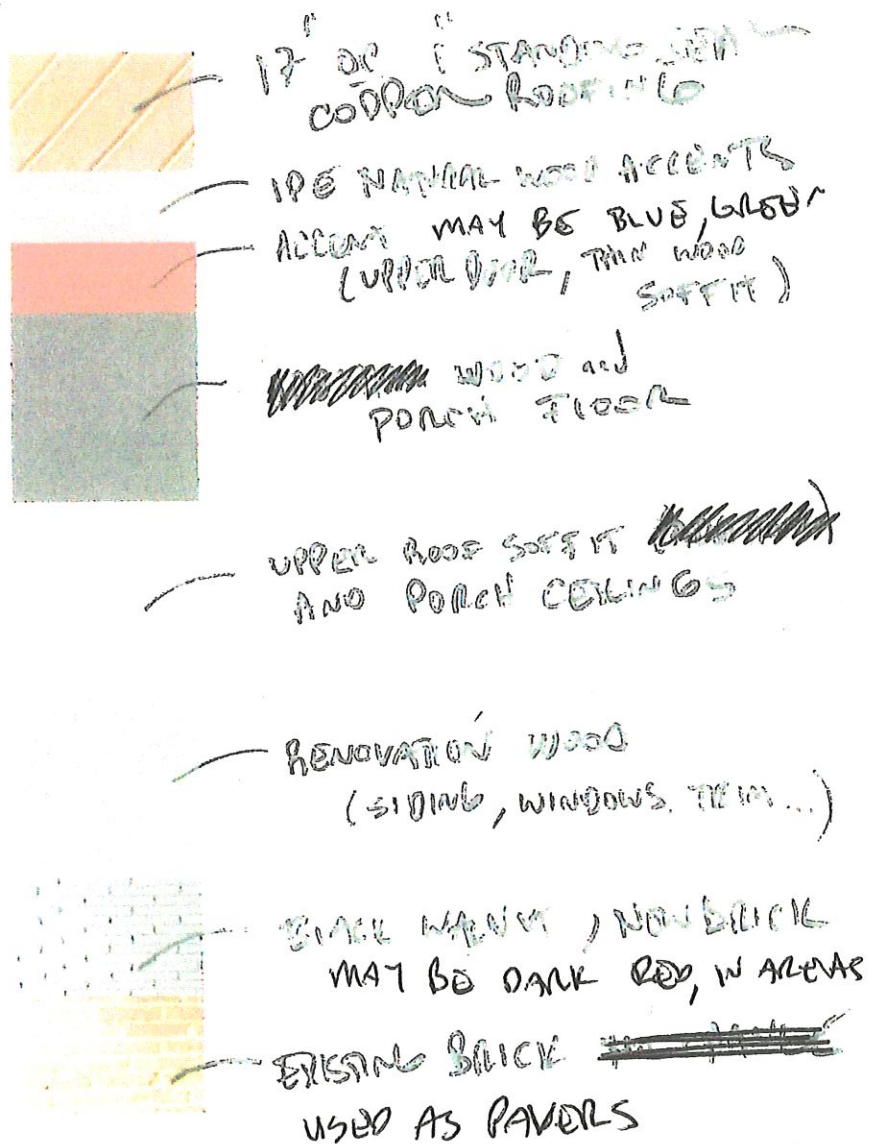 17" OR 1" STANDING SEAM
COPPER ROOFING
IPE NATURAL WOOD ACCENTS
ACCENT MAY BE BLUE, GREEN
(UPPER DOOR, THIN WOOD
SOFFIT)
WOOD and
PORCH FLOOR
UPPER ROOF SOFFIT
AND PORCH CEILINGS
RENOVATION WOOD
(SIDING, WINDOWS, TRIM...)
BLACK WALNUT, NEW BRICK
MAY BE DARK RED, IN AREAS
EXISTING BRICK
USED AS PAVERS